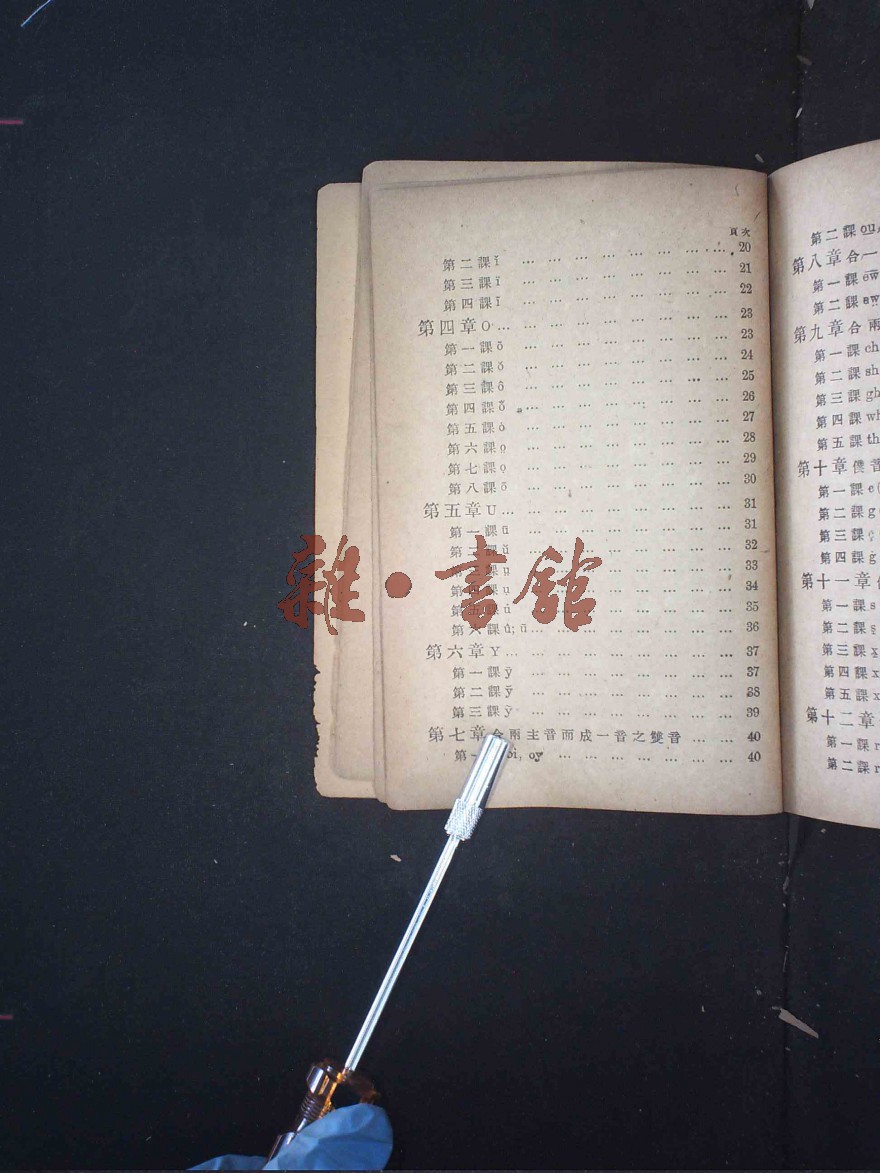 頁次
第二課ĭ … … … … … … … … 20
第三課ï … … … … … … … … 21
第四課ī … … … … … … … … 22
第四章O … … … … … … … … … 23
第一課ō … … … … … … … … 23
第二課ŏ … … … … … … … … 24
第三課ô … … … … … … … … 25
第四課 … … … … … … … … 26
第五課ȯ … … … … … … … … 27
第六課ọ … … … … … … … … 28
第七課ọ … … … … … … … … 29
第八課õ … … … … … … … … 30
第五章U … … … … … … … … … 31
第一課ū … … … … … … … … 31
第二課ŭ … … … … … … … … 32
第三課 … … … … … … … … 33
第四課ụ … … … … … … … … 34
第五課 … … … … … … … … 35
第六課 … … … … … … … … 36
第六章Y … … … … … … … … … 37
第一課ȳ … … … … … … … … 37
第二課 … … … … … … … … 38
第三課 … … … … … … … … 39
第七章合兩主音而成一音之雙音 … … 40
第一 oi, oy … … … … … … … … 40
第二課ou
第八章合一
第一課ew
第二課
第九章合兩
第一課ch
第二課sh
第三課gh
第四課wh
第五課th
第十章僕音
第一課c(
第二課g(
第三課
第四課g
第十一章
第一課s
第二課s
第三課x
第四課x
第五課x
第十二章
第一課r
第二課r
雜·書館